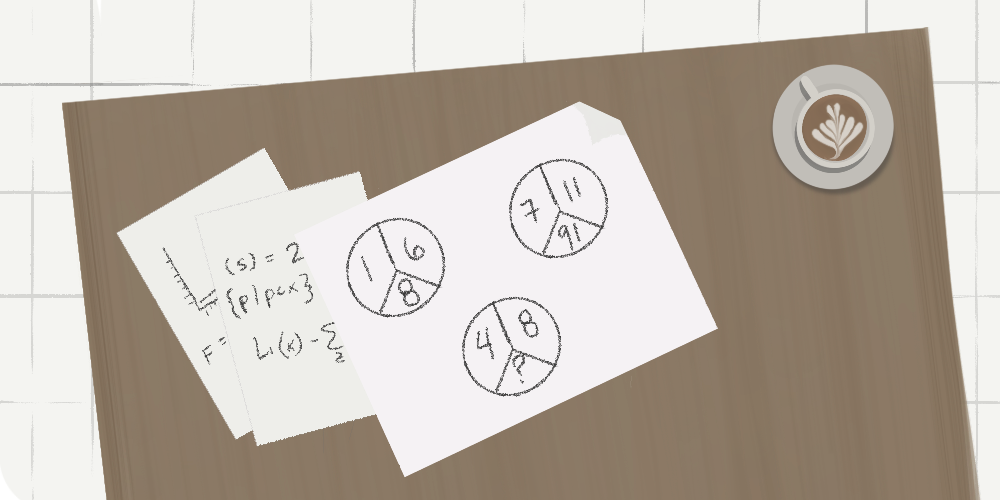 (s) = 2
{p|p<x}
F =
Li(x) - ∑
2
1 6
8
7 11
91
4 8
?